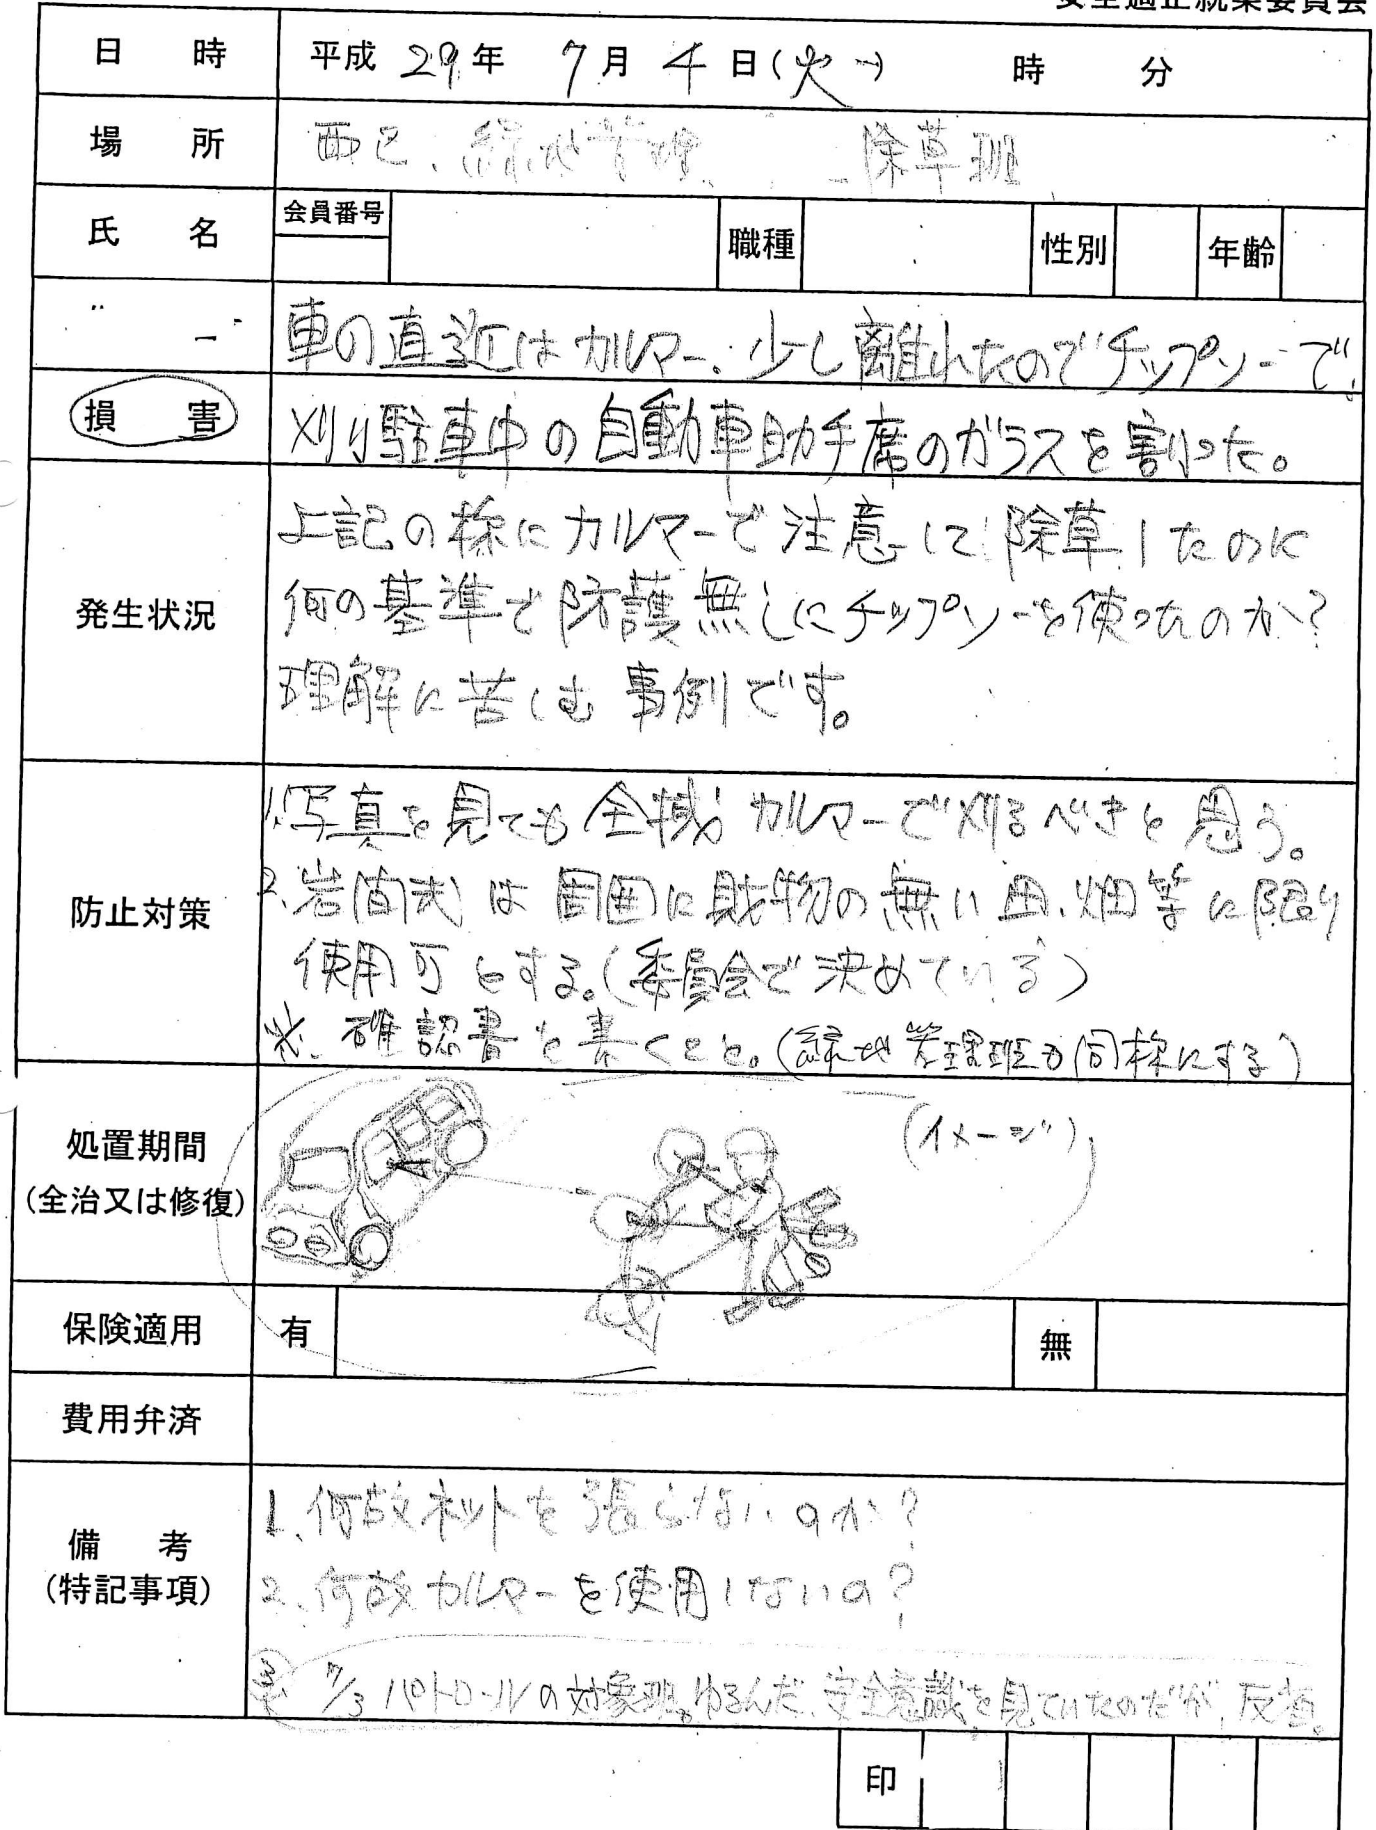 安全適正就業委員会
日 時 平成 29年 7月 4日(火) 時 分
場 所 西区、緑地管理、 除草班
氏 名 会員番号 職種 性別 年齢
車の直近はカルマー、少し離れたのでチップソーで、
損 害 刈り駐車中の自動車助手席のガラスを割った。
上記の様にカルマーで注意して除草したのに
発生状況 何の基準で防護無しにチップソーを使ったのか?
理解に苦しむ事例です。
1.写真を見ても全域カルマーで刈るべきと思う。
防止対策 2.岩間式は周囲に財物の無い田、畑等に限り
使用可とする。(委員会で決めている)
※、確認書を書くこと。(緑地管理班も同様にする)
処置期間 (イメージ)
(全治又は修復)
保険適用 有 無
費用弁済
1、何故ネットを張らないのか?
備 考
(特記事項) 2、何故カルマーを使用しないの?
7/3 パトロールの対象班。ゆるんだ、安全意識を見ていたのだが、反省。
印